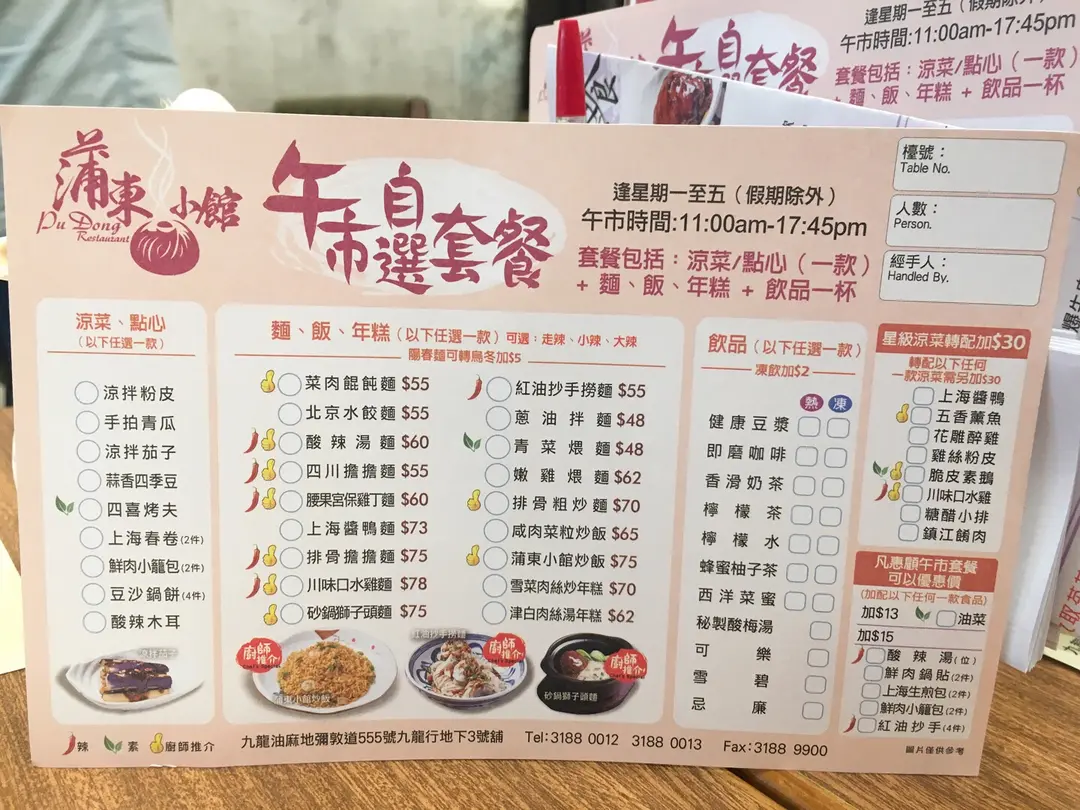 逢星期一至五（假期除外）
午市時間:11:00am-17:45pm
套餐包括：涼菜/點心（一款）
+ 麵、飯、年糕 + 飲品一杯
午市自選套餐
蒲東小館
Pu Dong
Restaurant
午市自選套餐
逢星期一至五（假期除外）
午市時間:11:00am-17:45pm
套餐包括：涼菜/點心（一款）
+ 麵、飯、年糕 + 飲品一杯
檯號：
Table No.
人數：
Person.
經手人：
Handled By.
涼菜、點心
（以下任選一款）
涼拌粉皮
手拍青瓜
涼拌茄子
蒜香四季豆
四喜烤夫
上海春卷(2件)
鮮肉小籠包(2件)
豆沙鍋餅(4件)
酸辣木耳
涼拌茄子
麵、飯、年糕（以下任選一款）可選：走辣、小辣、大辣
陽春麵可轉烏冬加$5
菜肉餛飩麵 $55
北京水餃麵 $55
酸辣湯麵 $60
四川擔擔麵 $55
腰果宮保雞丁麵 $60
上海醬鴨麵 $73
排骨擔擔麵 $75
川味口水雞麵 $78
砂鍋獅子頭麵 $75
紅油抄手撈麵 $55
蔥油拌麵 $48
青菜煨麵 $48
嫩雞煨麵 $62
排骨粗炒麵 $70
咸肉菜粒炒飯 $65
蒲東小館炒飯 $75
雪菜肉絲炒年糕 $70
津白肉絲湯年糕 $62
廚師推介
蒲東小館炒飯
紅油抄手撈麵
廚師推介
砂鍋獅子頭麵
廚師推介
飲品（以下任選一款）
凍飲加$2
熱 凍
健康豆漿
即磨咖啡
香滑奶茶
檸檬茶
檸檬水
蜂蜜柚子茶
西洋菜蜜
秘製酸梅湯
可樂
雪碧
忌廉
星級涼菜轉配加$30
轉配以下任何
一款涼菜需另加$30
上海醬鴨
五香薰魚
花雕醉雞
雞絲粉皮
脆皮素鵝
川味口水雞
糖醋小排
鎮江餚肉
凡惠顧午市套餐
可以優惠價
(加配以下任何一款食品)
加$13 油菜
加$15
酸辣湯(位)
鮮肉鍋貼(2件)
上海生煎包(2件)
鮮肉小籠包(2件)
紅油抄手(4件)
辣 素 廚師推介
九龍油麻地彌敦道555號九龍行地下3號舖 Tel:3188 0012 3188 0013 Fax:3188 9900
圖片僅供參考